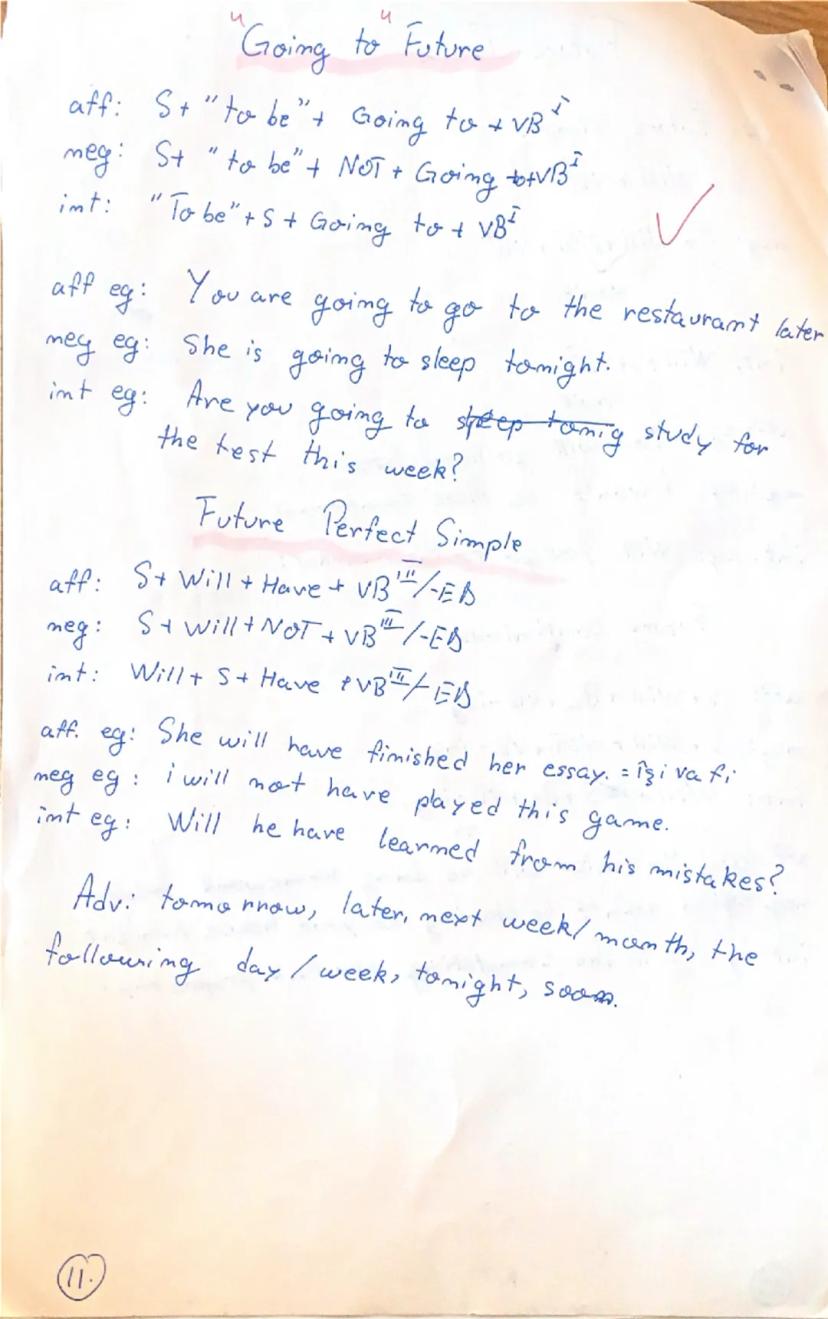 "Going to" Future
aff: S+ "to be"+ Going to + VB I
neg: S+ "to be"+ NOT + Going to+VB I
int: "To be"+S+ Going to + VB I
aff eg: You are going to go to the restaurant later
neg eg: She is going to sleep tonight.
int eg: Are you going to study for
the test this week?
Future Perfect Simple
aff: S+ Will + Have + VB III/-ED
neg: S+ Will+NOT+VB III/-ED
int: Will+ S+ Have +VB III/-ED
aff. eg: She will have finished her essay. = își va fi
neg eg: i will not have played this game.
int eg: Will he have learned from his mistakes?
Adv: tomorrow, later, next week/month, the
following day/week, tonight, soon.
11.